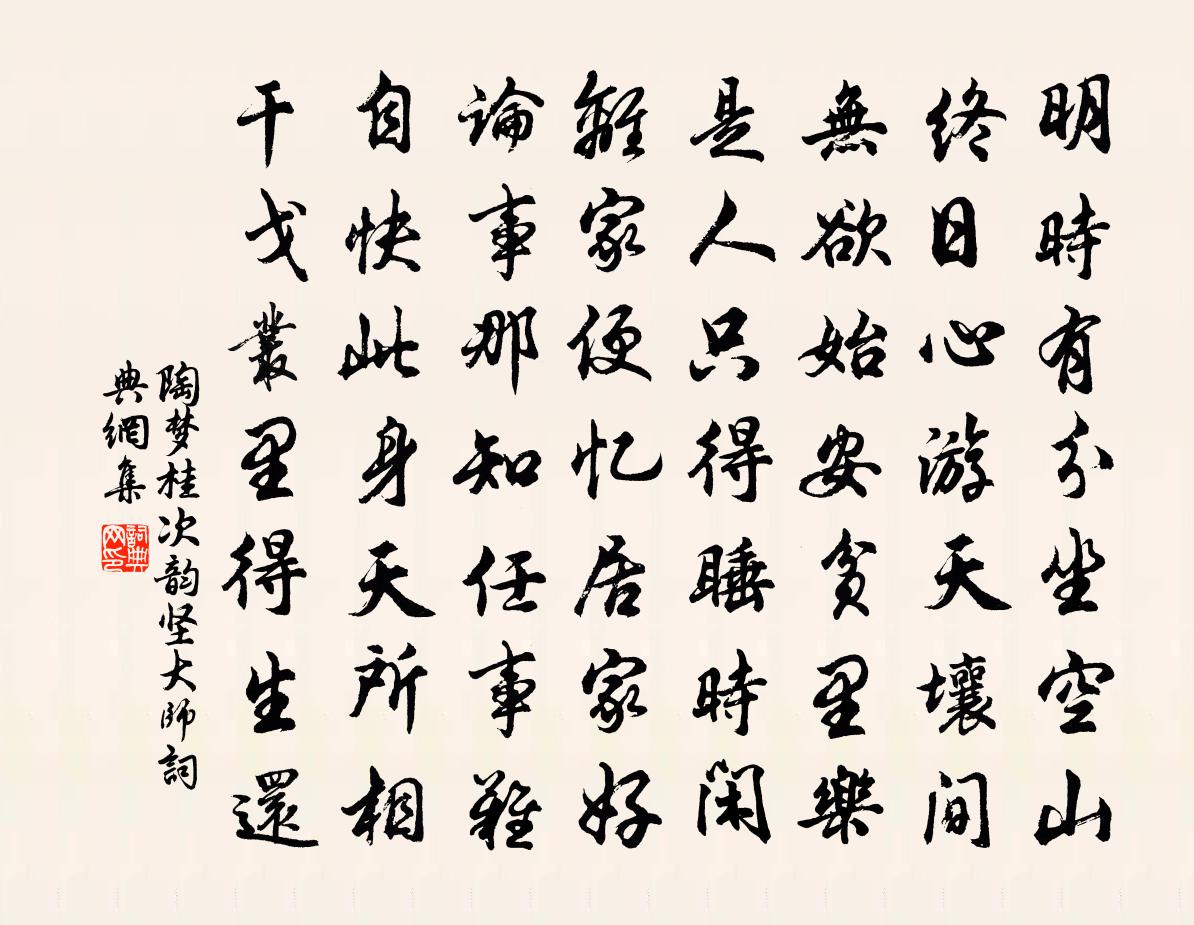 明時有分坐空山
終日心游天壤間
無欲始安貧里樂
是人只得睡時闲
離家便忆居家好
論事那知任事難
自快此身天所相
干戈叢里得生還
陶梦桂次韵坚大师詞
典網集
詞典网印